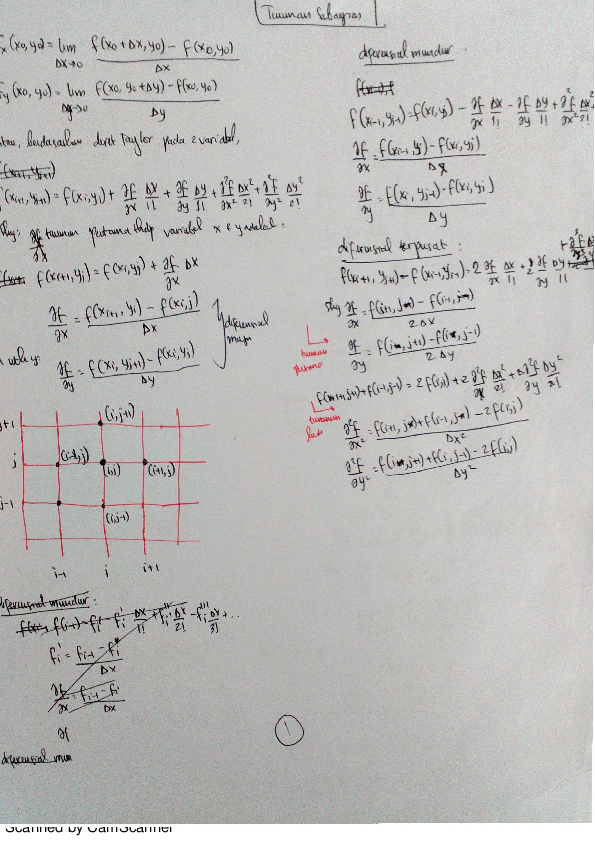 Turunan Sebagian
f_x(x0, y0) = lim Δx→0 f(x0+Δx, y0) − f(x0, y0) / Δx
f_y(x0, y0) = lim Δy→0 f(x0, y0+Δy) − f(x0, y0) / Δy
atau, berdasarkan deret Taylor pada 2 variabel,
f(xi+1, yj+1) = f(xi, yj) + ∂f/∂x Δx/1! + ∂f/∂y Δy/1! + ∂²f/∂x² Δx²/2! + ∂²f/∂y² Δy²/2!
turunan pertama thdp variabel x & y adalah:
f(xi+1, yj) = f(xi, yj) + ∂f/∂x Δx
∂f/∂x = f(xi+1, yj) − f(xi, j) / Δx
∂f/∂y = f(xi, yj+1) − f(xi, yj) / Δy
diferensial maju
j+1
(i, j+1)
j
(i-1, j)
(i, j)
(i+1, j)
j-1
(i, j-1)
i-1 i i+1
diferensial mundur :
f(i-1) = fi − fi' Δx/1! + fi'' Δx/2! − fi''' Δx/3! + ...
fi' = fi-1 − fi / Δx
∂f/∂x = fi-1 − fi / Δx
∂f
diferensial mun
diferensial mundur :
f(xi-1, yj-1) = f(xi, yj) − ∂f/∂x Δx/1! − ∂f/∂y Δy/1! + ∂²f/∂x² Δx²/2! +
∂f/∂x = f(xi-1, yj) − f(xi, yj) / Δx
∂f/∂y = f(xi, yj-1) − f(xi, yj) / Δy
diferensial terpusat :
f(xi+1, yj+1) − f(xi-1, yj-1) = 2 ∂f/∂x Δx/1! + 2 ∂f/∂y Δy/1!
∂f/∂x = f(i+1, j) − f(i-1, j) / 2Δx
turunan
pertama
∂f/∂y = f(i, j+1) − f(i, j-1) / 2Δy
f(i+1, j+1) + f(i-1, j-1) = 2f(i, j) + 2 ∂²f/∂x² Δx²/2! + 2 ∂²f/∂y Δy²/2!
turunan
∂²f/∂x² = f(i+1, j) + f(i-1, j) − 2f(i, j) / Δx²
∂²f/∂y² = f(i, j+1) + f(i, j-1) − 2f(i, j) / Δy²
1
Scanned by CamScanner